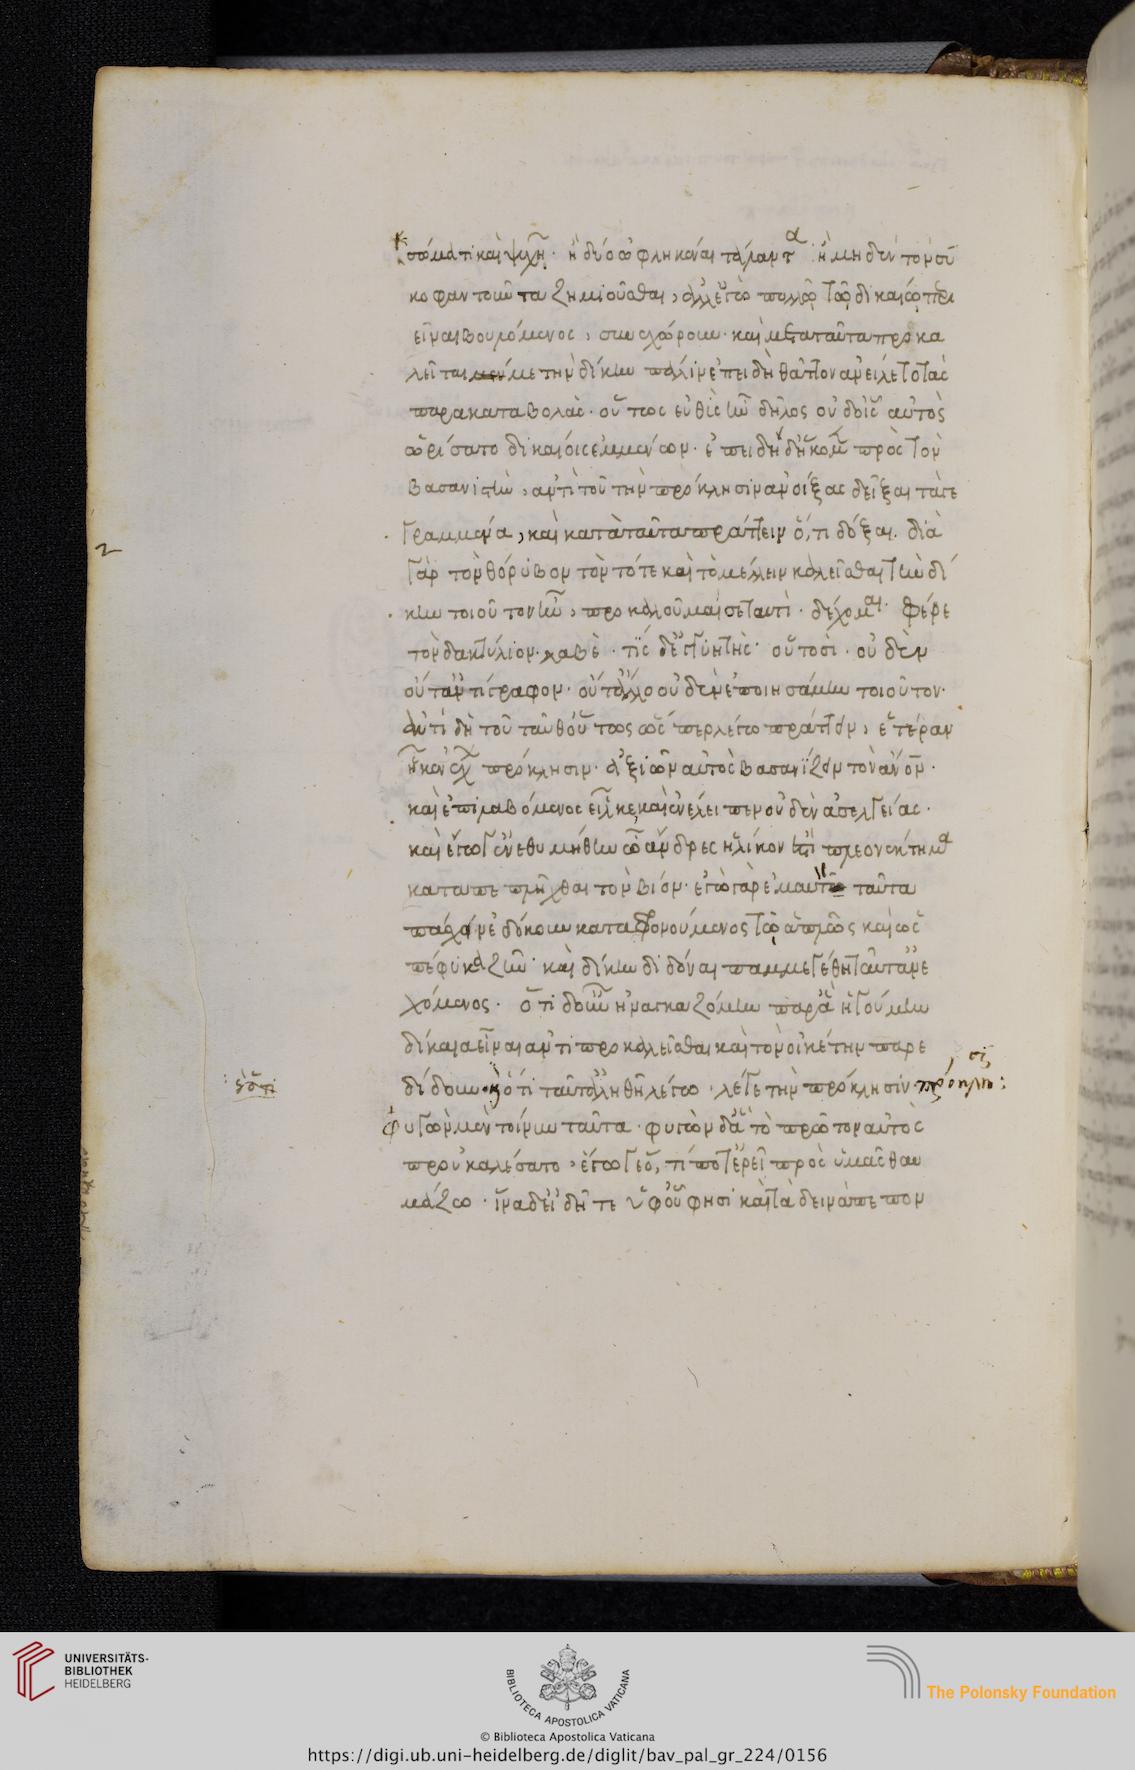 σώματι καὶ ψυχῆ· ἢ δύο ὠφληκέναι τάλαντα ἢ μηδὲν τὸν συ
κοφαντοῦντα ζημιοῦσθαι, ἀλλ' ἐγὼ πολλῶ τῶ δικαίω περι
εῖναι βουλόμενος, συνεχώρουν· καὶ μετα ταῦτα προκα
λεῖται με τὴν δίκην πάλιν ἐπειδὴ θᾶττον ἀνείλετο τὰς
παρακαταβολάς· οὕτως εὐθὺς ἦν δῆλος οὐδ' οἷς αὐτὸς
ὡρίσατο δικαίοις ἐμμένων· ἐπειδὴ δ' ἥκομεν πρὸς τὸν
βασανιστήν, ἀντὶ τοῦ τὴν πρόκλησιν ἀνοίξας δεῖξαι τὰ γε
γραμμένα, καὶ κατὰ ταῦτα πράττειν ὅ,τι δόξαι. διὰ
γὰρ τὸν θόρυβον τὸν τότε καὶ τὸ μέλλειν καλεῖσθαι τὴν δί
κην τοιοῦτον ἦν, προκαλοῦμαί σε ταυτὶ· δέχομαι· φέρε
τὸν δακτύλιον· λαβὲ· τίς δ' ἐγγυητὴς· οὑτοσὶ· οὐδὲν
οὔτ' ἀντίγραφον· οὔτ' ἄλλο οὐδὲν ἐποιησάμην τοιοῦτον·
ἀντὶ δὴ τοῦ ταῦθ' οὕτως ὥσπερ λέγω πράττειν, ἑτέραν
ἧκεν ἔχων πρόκλησιν· ἀξιῶν αὐτὸς βασανίζειν τὸν ἄνον·
καὶ ἐπιλαβόμενος εἷλκε, καὶ ἐνέλειπεν οὐδὲν ἀσελγείας·
καὶ ἔγωγ' ἐνεθυμήθην ὦ ἄνδρες ἡλίκον ἐστὶ πλεονέκτημα
καταπεπλῆχθαι τὸν βίον· ἐγὼ γὰρ ἐμαυτῶ ταῦτα
πάσχειν ἐδόκουν καταφρονούμενος τῶ ἁπλῶς καὶ ὡς
πέφυκα ζῆν· καὶ δίκην διδόναι παμμεγέθη ταῦτ' ἀνε
χόμενος. ὅτι δ' οὖν ἠναγκαζόμην παρ' ἃ ἡγούμην
δίκαια εἶναι ἀντιπροκαλεῖσθαι καὶ τὸν οἰκέτην παρε
δίδουν· καὶ ὅτι ταῦτ' ἀληθῆ λέγω· λέγε τὴν πρόκλησίν· πρόκλησις:
: ἐστὶ
φυγὼν μὲν τοίνυν ταῦτα· φυγὼν δ' ἃ τὸ πρῶτον αὐτὸς
προὐκαλέσατο, ἔγωγε ὅ,τι ποτ' ἐρεῖ πρὸς ὑμᾶς θαυ
μάζω· ἵνα δ' εἰδῆτε ὑφ' οὗ φησὶ καὶ τὰ δεινὰ πεπον
UNIVERSITÄTS-
BIBLIOTHEK
HEIDELBERG
BIBLIOTECA APOSTOLICA VATICANA
The Polonsky Foundation
© Biblioteca Apostolica Vaticana
https://digi.ub.uni-heidelberg.de/diglit/bav_pal_gr_224/0156